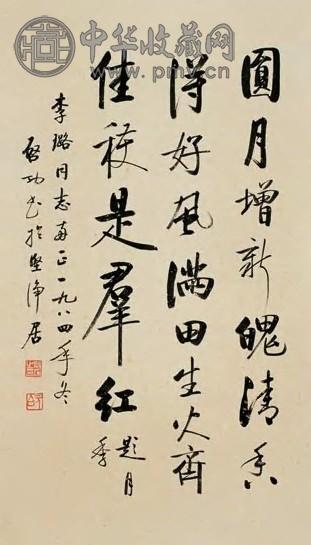 中华收藏网
圓月增新魄清香
得好風滿田生火齊
佳是羣紅
題月季
李璐同志正一九八四年冬
啓功書於堅淨居